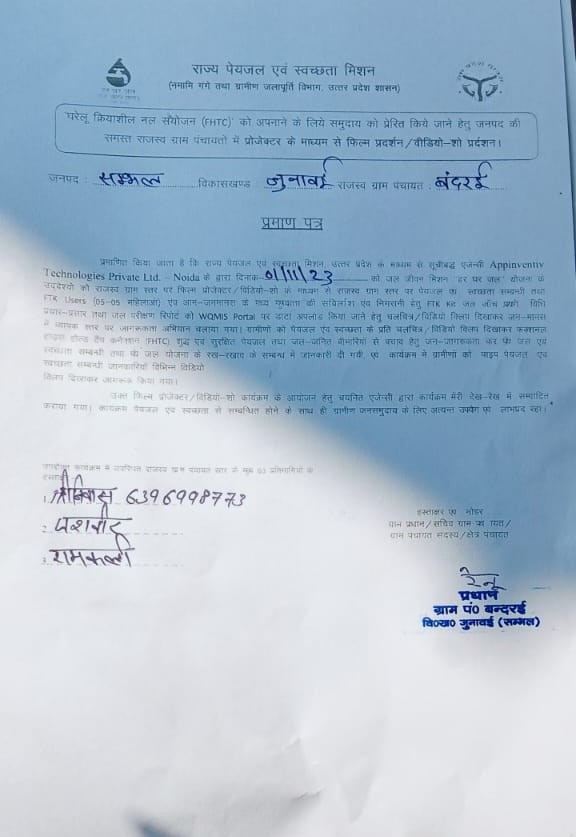 राज्य पेयजल एवं स्वच्छता मिशन
(नमामि गंगे तथा ग्रामीण जलापूर्ति विभाग, उत्तर प्रदेश शासन)
'घरेलू क्रियाशील नल संयोजन (FHTC)' को अपनाने के लिये समुदाय को प्रेरित किये जाने हेतु जनपद की
समस्त राजस्व ग्राम पंचायतों में प्रोजेक्टर के माध्यम से फिल्म प्रदर्शन/वीडियो-शो प्रर्दशन।
जनपद : सम्भल विकासखण्ड जुनावई राजस्व ग्राम पंचायत : बंदरई
प्रमाण पत्र
प्रमाणित किया जाता है कि राज्य पेयजल एवं स्वच्छता मिशन, उत्तर प्रदेश के माध्यम से सूचीबद्ध एजेन्सी Appinventiv
Technologies Private Ltd. – Noida के द्वारा दिनांक 01/11/23 को जल जीवन मिशन 'हर घर जल' योजना के
उददेश्यो को राजस्व ग्राम स्तर पर फिल्म प्रोजेक्टर/विडियो-शो के माध्यम से राजस्व ग्राम स्तर पर पेयजल एवं स्वच्छता सम्बन्धी तथा
FTK Users (05-05 महिलाओं) एवं आन-जनमानस के मध्य गुणवत्ता की निगरानी हेतु FTK Kit जल जाँच विधि
प्रचार-प्रसार तथा जल परीक्षण रिपोर्ट को WQMIS Portal पर डाटा अपलोड किया जाने हेतु चलचित्र/विडियो क्लिप दिखाकर जन-मानस
में व्यापक स्तर पर जागरूकता अभियान चलाया गया। ग्रामीणों को पेयजल एवं स्वच्छता के प्रति चलचित्र/विडियो क्लिप दिखाकर फंक्शनल
हाउस होल्ड टैप कनेक्शन (FHTC) शुद्ध एवं सुरक्षित पेयजल तथा जल-जनित बीमारियों से बचाव हेतु जन-जागरूकता कर पेय जल एवं
स्वच्छता सम्बन्धी तथा पेय जल योजना के रख-रखाव के सम्बन्ध में जानकारी दी गयी एवं कार्यक्रम में ग्रामीणों को पाइप पेयजल एवं
स्वच्छता सम्बन्धी जानकारियाँ विभिन्न विडियो
क्लिप दिखाकर जागरूक किया गया।
उक्त फिल्म प्रोजेक्टर/विडियो-शो कार्यक्रम के आयोजन हेतु चयनित एजेन्सी द्वारा कार्यक्रम मेरी देख-रेख में सम्पादित
कराया गया। कार्यक्रम पेयजल एवं स्वच्छता से सम्बन्धित होने के साथ ही ग्रामीण जनसमुदाय के लिए अत्यन्त उपयोगी एवं लाभप्रद रहा।
उपरोक्त कार्यक्रम में उपस्थित राजस्व ग्राम पंचायत स्तर के मुख्य 03 प्रतिभागियों के
हस्ताक्षर
1. श्रीनिवास 6396998773
2. यशवीर
3. रामकली
हस्ताक्षर एवं मोहर
ग्राम प्रधान/सचिव ग्राम पंचायत/
ग्राम पंचायत सदस्य/क्षेत्र पंचायत
रेनू
प्रधान
ग्राम पं० बन्दरई
वि०ख० जुनावई (सम्भल)